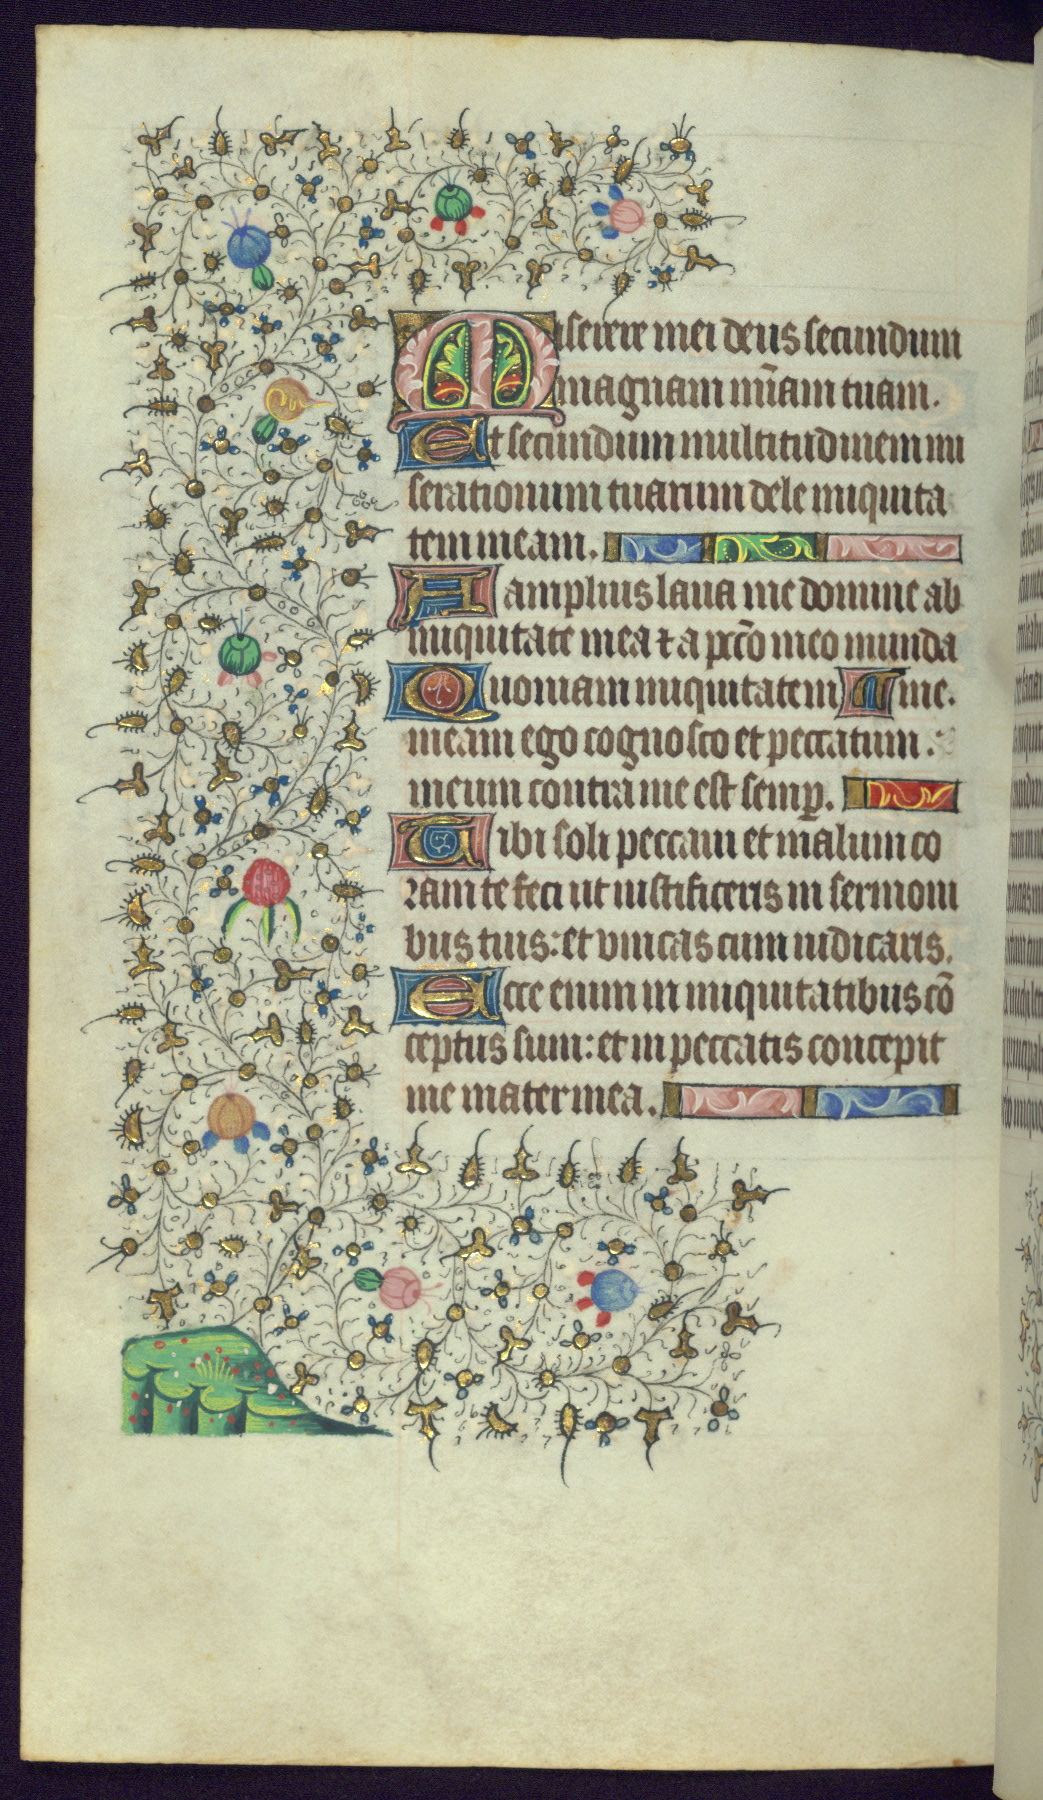 Miserere mei deus secundum
magnam mīam tuam.
Et secundum multitudinem mi
serationum tuarum dele iniquita
tem meam.
Amplius laua me domine ab
iniquitate mea ⁊ a pctō meo munda
Quoniam iniquitatem me.
meam ego cognosco et peccatum.
meum contra me est semp̱.
Tibi soli peccaui et malum co
ram te feci ut iustificeris in sermoni
bus tuis: et vincas cum iudicaris.
Ecce enim in iniquitatibus cō
ceptus sum: et in peccatis concepit
me mater mea.